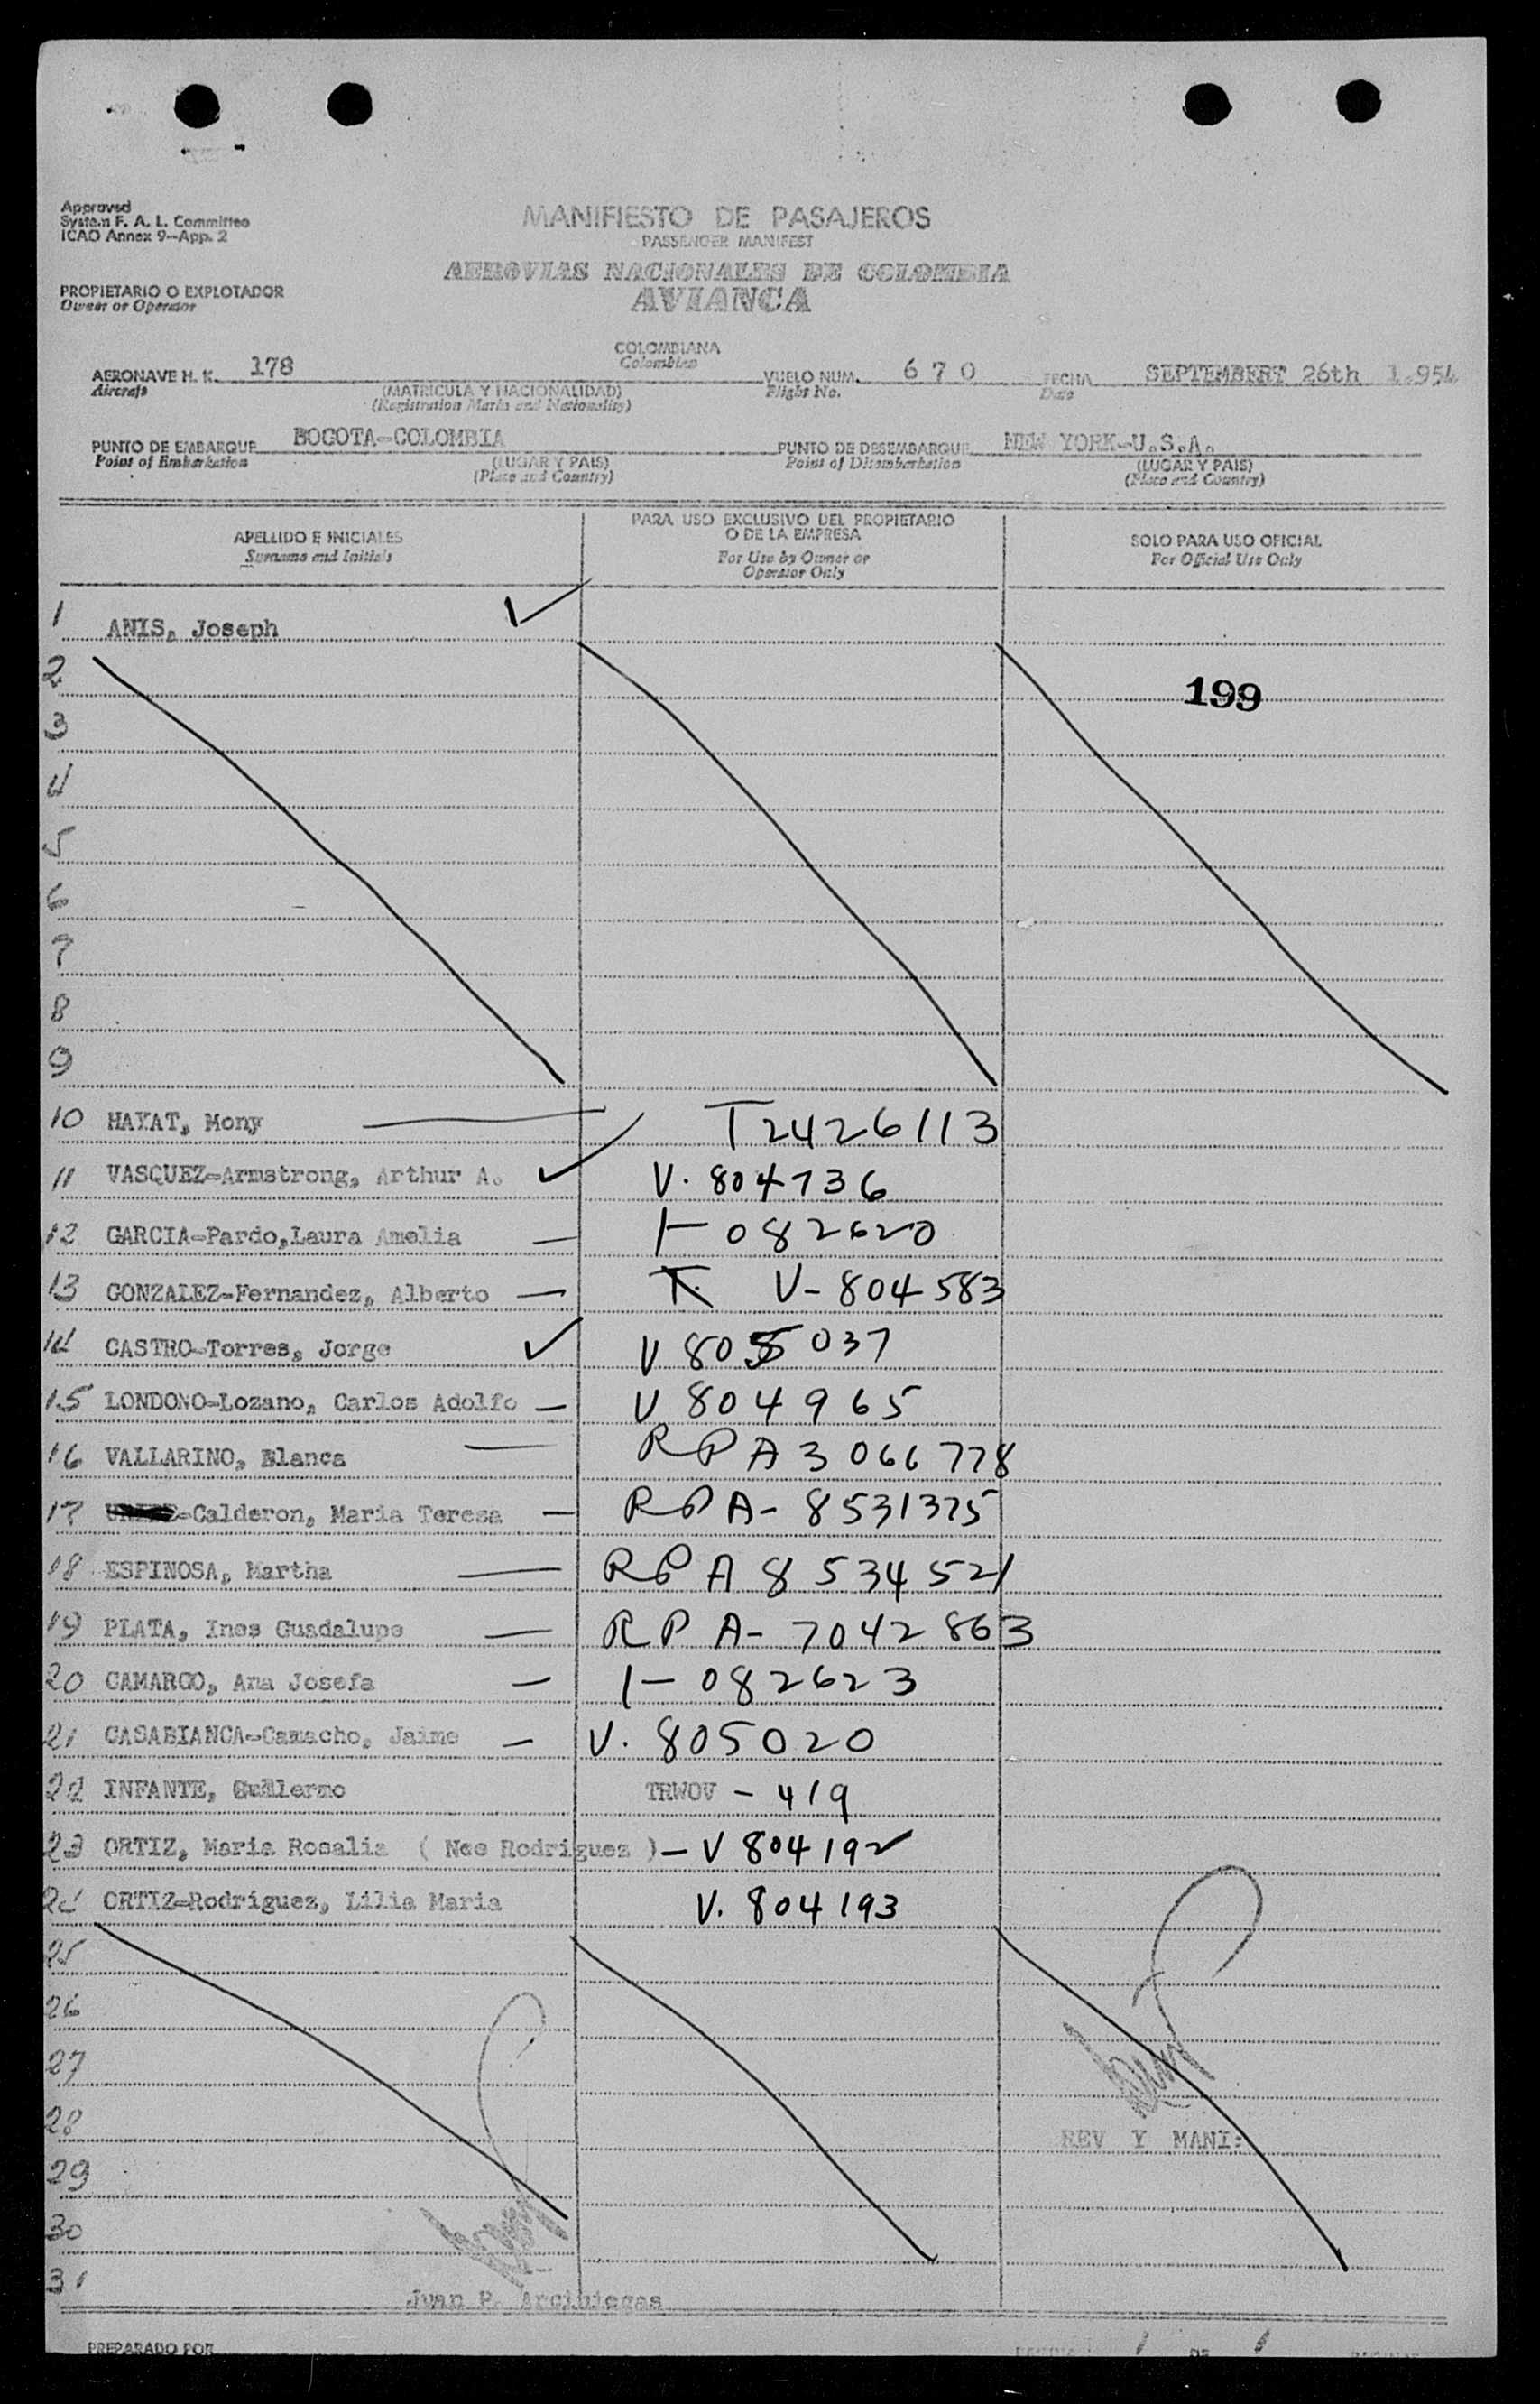 Approved
System F. A. L. Committee
ICAO Annex 9-App. 2
MANIFIESTO DE PASAJEROS
PASSENGER MANIFEST
AEROVIAS NACIONALES DE COLOMBIA
AVIANCA
PROPIETARIO O EXPLOTADOR
Owner or Operator
COLOMBIANA
Colombian
AERONAVE H. K. 178 VUELO NUM. 6 7 0 FECHA SEPTEMBERT 26th 1.954
Aircraft (MATRICULA Y NACIONALIDAD) Flight No. Date
(Registration Marks and Nationality)
PUNTO DE EMBARQUE BOGOTA-COLOMBIA PUNTO DE DESEMBARQUE NEW YORK-U.S.A.
Point of Embarkation (LUGAR Y PAIS) Point of Disembarkation (LUGAR Y PAIS)
(Place and Country) (Place and Country)
APELLIDO E INICIALES PARA USO EXCLUSIVO DEL PROPIETARIO SOLO PARA USO OFICIAL
Surname and Initials O DE LA EMPRESA For Official Use Only
For Use by Owner or
Operator Only
1 ANIS, Joseph
2 199
3
4
5
6
7
8
9
10 HAYAT, Mony T2426113
11 VASQUEZ-Armstrong, Arthur A. V. 804736
12 GARCIA-Pardo,Laura Amelia 1-082620
13 GONZALEZ-Fernandez, Alberto V-804583
14 CASTRO-Torres, Jorge V 805037
15 LONDONO-Lozano, Carlos Adolfo V 804965
16 VALLARINO, Blanca RPA 3066778
17 -Calderon, Maria Teresa RPA-8531375
18 ESPINOSA, Martha RPA 8534521
19 PLATA, Ines Guadalupe RPA-7042863
20 CAMARGO, Ana Josefa 1-082623
21 CASABIANCA-Camacho, Jaime V. 805020
22 INFANTE, Guillermo TRWOV - 419
23 ORTIZ, Maria Rosalia ( Nee Rodriguez ) - V 804192
24 ORTIZ-Rodriguez, Lilia Maria V. 804193
25
26
27
28 REV Y MANI:
29
30
31 Juan P. Arciniegas
PREPARADO POR 1 DE 1